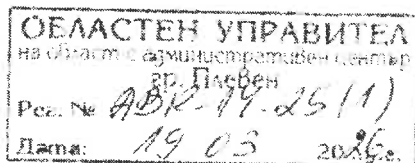 ОБЛАСТЕН УПРАВИТЕЛ
на област с административен център
гр. Плевен
Рег. № АВК-14-25(1)
Дата: 19 03 2026г.